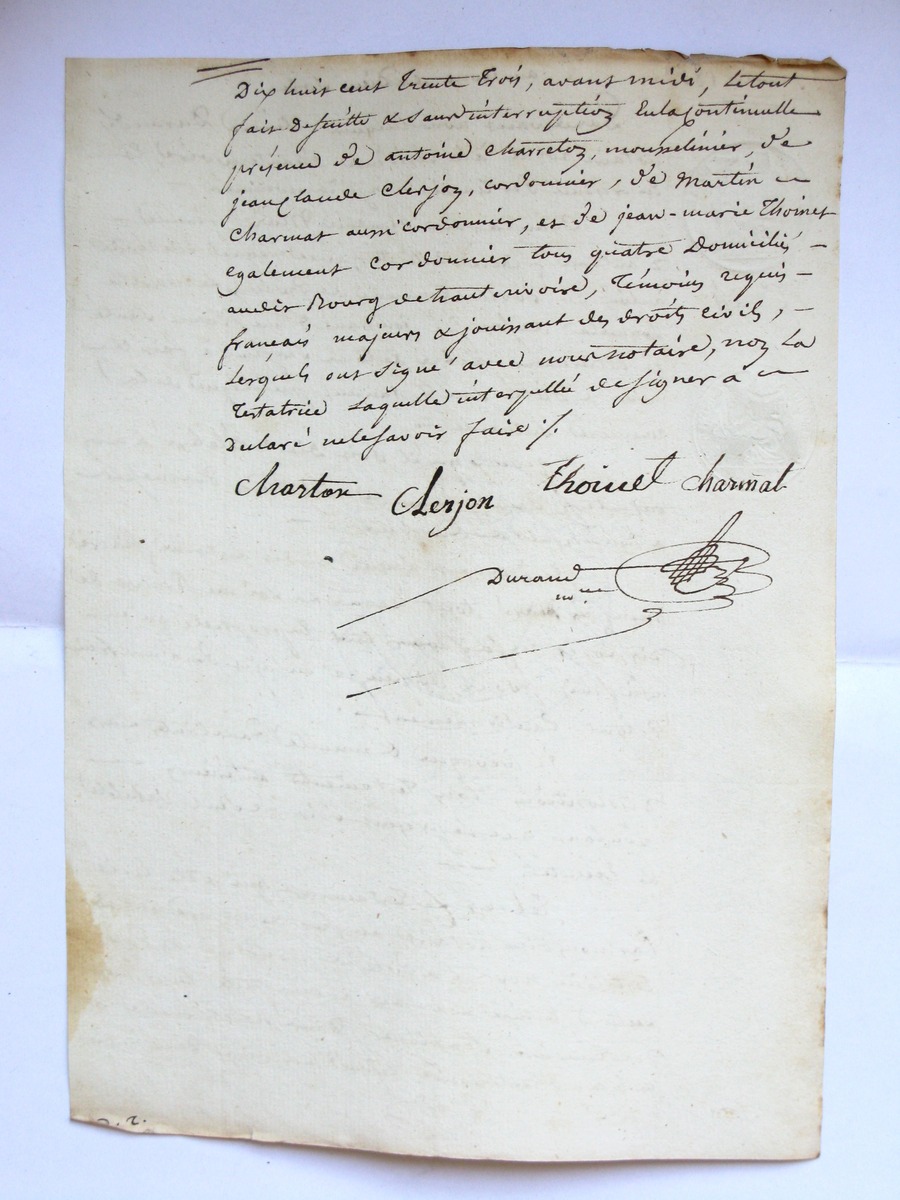 Dix huit cent trente trois, avant midi, le tout
fait de suitte & sans interruption en la continuelle
présence de antoine Charreton, mousselinier, de
jean claude Clerjon, cordonnier, de Martin
Charmat aussi cordonnier, et de jean-marie Thoinet
egalement cordonnier tous quatre Domiciliés
audit Bourg de hauterivoire, Témoins requis
français majeurs & jouissant des droits civils,
Lesquels ont signé avec nous notaire, non La
Testatrice Laquelle interpellée de signer a
Declaré ne le savoir faire ./.
Clerjon Thoinet Charmat
Durand
nore